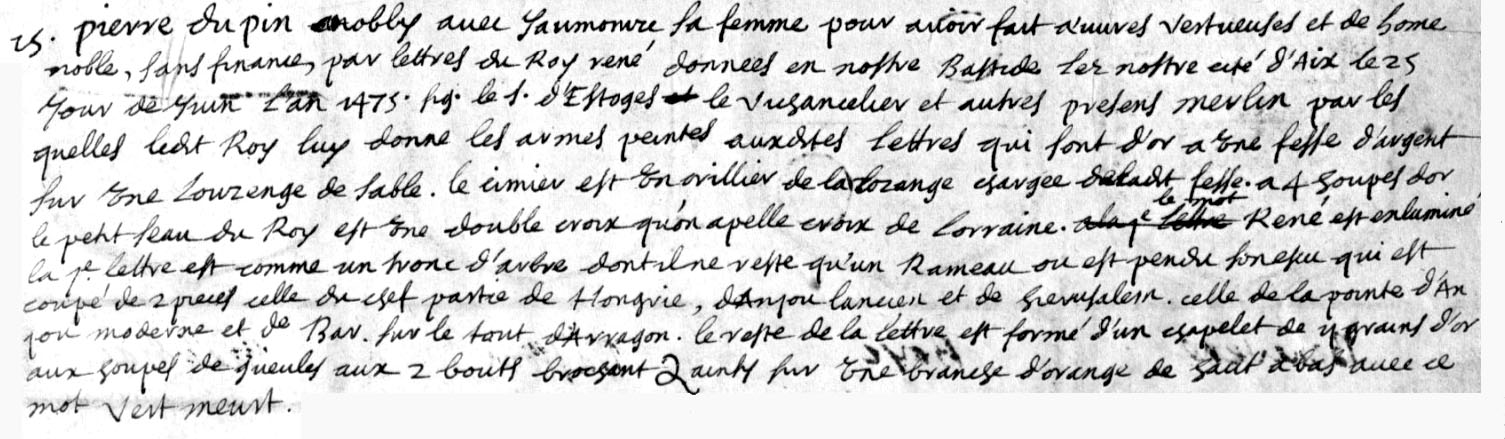 25. pierre du pin anobly avec Saumonne sa femme pour avoir fait œuvres vertueuses et de home
noble, sans finance, par lettres du Roy rené données en nostre Bastide lez nostre cité d'Aix le 25
Jour de Juin l'an 1475. sig. le s. d'Estoges et le vichancelier et autres presens merlin par les
quelles ledit Roy luy donne les armes peintes auxdites lettres qui sont d'or a une fesse d'argent
sur une Louzenge de sable. le cimier est un orillier de la lozange chargee de ladit fesse. a 4 houpes d'or
le petit seau du Roy est une double croix qu'on apelle croix de Lorraine. a la p^e lettre le mot René est enluminé
la p^e. lettre est comme un tronc d'arbre dont il ne reste qu'un Rameau ou est pendu son escu qui est
coupé de 2 pieces celle du chef partie de Hongrie, d'Anjou lancien et de hierusalem. celle de la pointe d'An
jou moderne et de Bar. sur le tout d'Arragon. le reste de la lettre est formé d'un chapelet de 11 grains d'or
aux houpes de gueules aux 2 bouts brochant sur une branche d'orange de haut a bas avec ce
mot vert meurt.